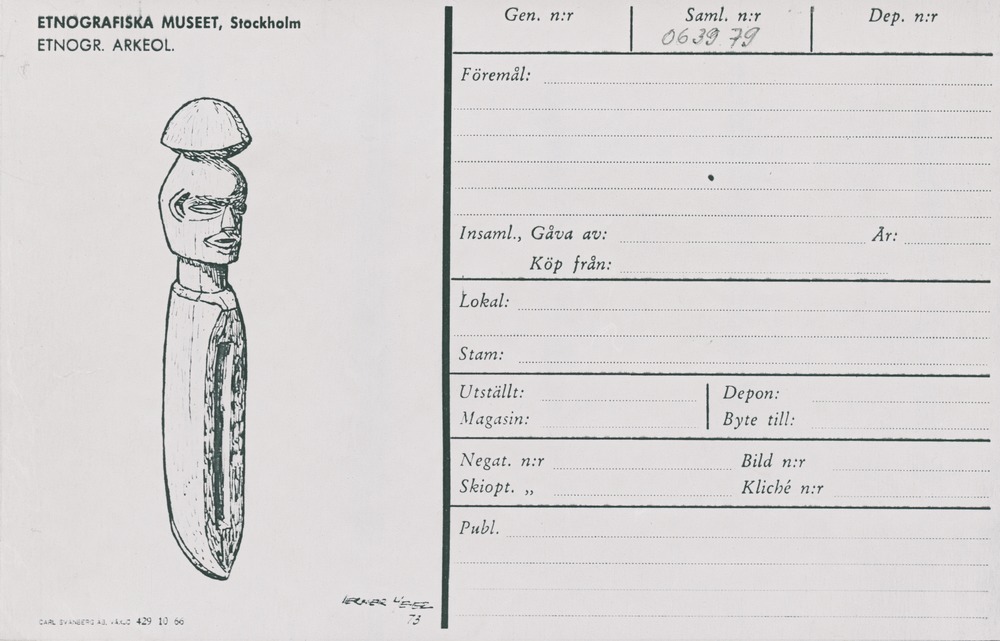 ETNOGRAFISKA MUSEET, Stockholm
ETNOGR. ARKEOL.
CARL SVANBERG AB, VÄXJÖ 429 10 66
73
Gen. n:r
Saml. n:r
Dep. n:r
0639.79
Föremål:
Insaml., Gåva av:
År:
Köp från:
Lokal:
Stam:
Utställt:
Depon:
Magasin:
Byte till:
Negat. n:r
Bild n:r
Skiopt. „
Kliché n:r
Publ.